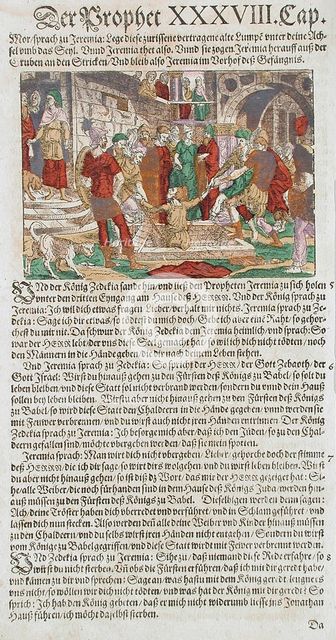 Der Prophet XXXVIII. Cap.
Mor sprach zu Jeremia: Lege diese zurissene vertragene alte Lumpē vnter deine Ach-
sel vmb das Seyl. Vnnd Jeremia thet also. Vnnd sie zogen Jeremia herauff auß der
Gruben an den Stricken/ Vnd bleib also Jeremia im Vorhof deß Gefängnis.
VNd der König Zedekia sandte hin/ vnd ließ den Propheten Jeremia zu sich holen
vnter den dritten Eyngang am Hause deß HERRN. Vnd der König sprach zu
Jeremia: Ich wil dich etwas fragen/ Lieber/ verhalt mir nichts. Jeremia sprach zu Ze-
dekia: Sage ich dir etwas/ so tödtest du mich doch/ Gebe ich aber eine Raht/ so gehor-
chest du mir nit. Da schwur der König Zedekia dem Jeremia heimlich/ vnd sprach: So
war der HERR lebt/ der vns diese Seel gemacht hat/ so wil ich dich nicht tödten/ noch
den Männern in die Hände geben/ die dir nach deinem Leben stehen.
Vnd Jeremia sprach zu Zedekia: So spricht der HERR/ der Gott Zebaoth/ der
Gott Israel: Wirst du hinauß gehen zu den Fürsten deß Königs zu Babel/ so solt du
leben bleiben/ vnd diese Stadt sol nicht verbrandt werden/ sondern du vnnd dein Hauß
sollen bey leben bleiben. Wirstu aber nicht hinauß gehen zu den Fürsten deß Königs
zu Babel/ so wird diese Stadt den Chaldeern in die Hände gegeben/ vnnd werden sie
mit Feuwer verbrennen/ vnd du wirst auch nicht jren Händen entrinnen. Der König
Zedekia sprach zu Jeremia: Ich besorge mich aber/ daß ich den Jüden/ so zu den Chal-
deern gefallen sind/ möcht vbergeben werden/ daß sie mein spotten.
Jeremia sprach: Man wirt dich nicht vbergeben/ Lieber/ gehorche doch der stimme
deß HERRN/ die ich dir sage/ so wirt dirs wolgehen/ vnd du wirst leben bleiben. Wirst
du aber nicht hinauß gehen/ so ist diß dz Wort/ das mir der HERR gezeiget hat: Si-
he/ alle Weiber/ die noch fürhanden sind in dem Hause deß Königs Juda/ werden hin-
auß müssen zu den Fürsten deß Königs zu Babel. Dieselbigen werden denn sagen:
Ach/ deine Tröster haben dich vberredet vnd verführet/ vnd in Schlam geführet/ vnd
lassen dich nun stecken. Also werden deñ alle deine Weiber vnd Kinder hinauß müssen
zu den Chaldeern/ vnd du selbs wirst jren Händen nicht entgehen/ Sondern du wirst
vom König zu Babel gegriffen/ vnd diese Stadt wirdt mit Feuwer verbrennet werden.
VNd Zedekia sprach zu Jeremia: Sihe zu/ daß niemand diese Rede erfahr/ so
wirstu nicht sterben. Vñ obs die Fürsten erführen/ daß ich mit dir geredt habe/
vnd kämen zu dir vnd sprechen: Sage an/ was hastu mit dem König geredt/ leugne es
vns nicht/ so wöllen wir dich nicht tödten/ vnd was hat der König mit dir geredt? So
sprich: Ich hab den König gebeten/ daß er mich nicht widerumb liesse ins Jonathan
Hauß führen/ ich möcht daselbst sterben.
Da
5
6
7
8